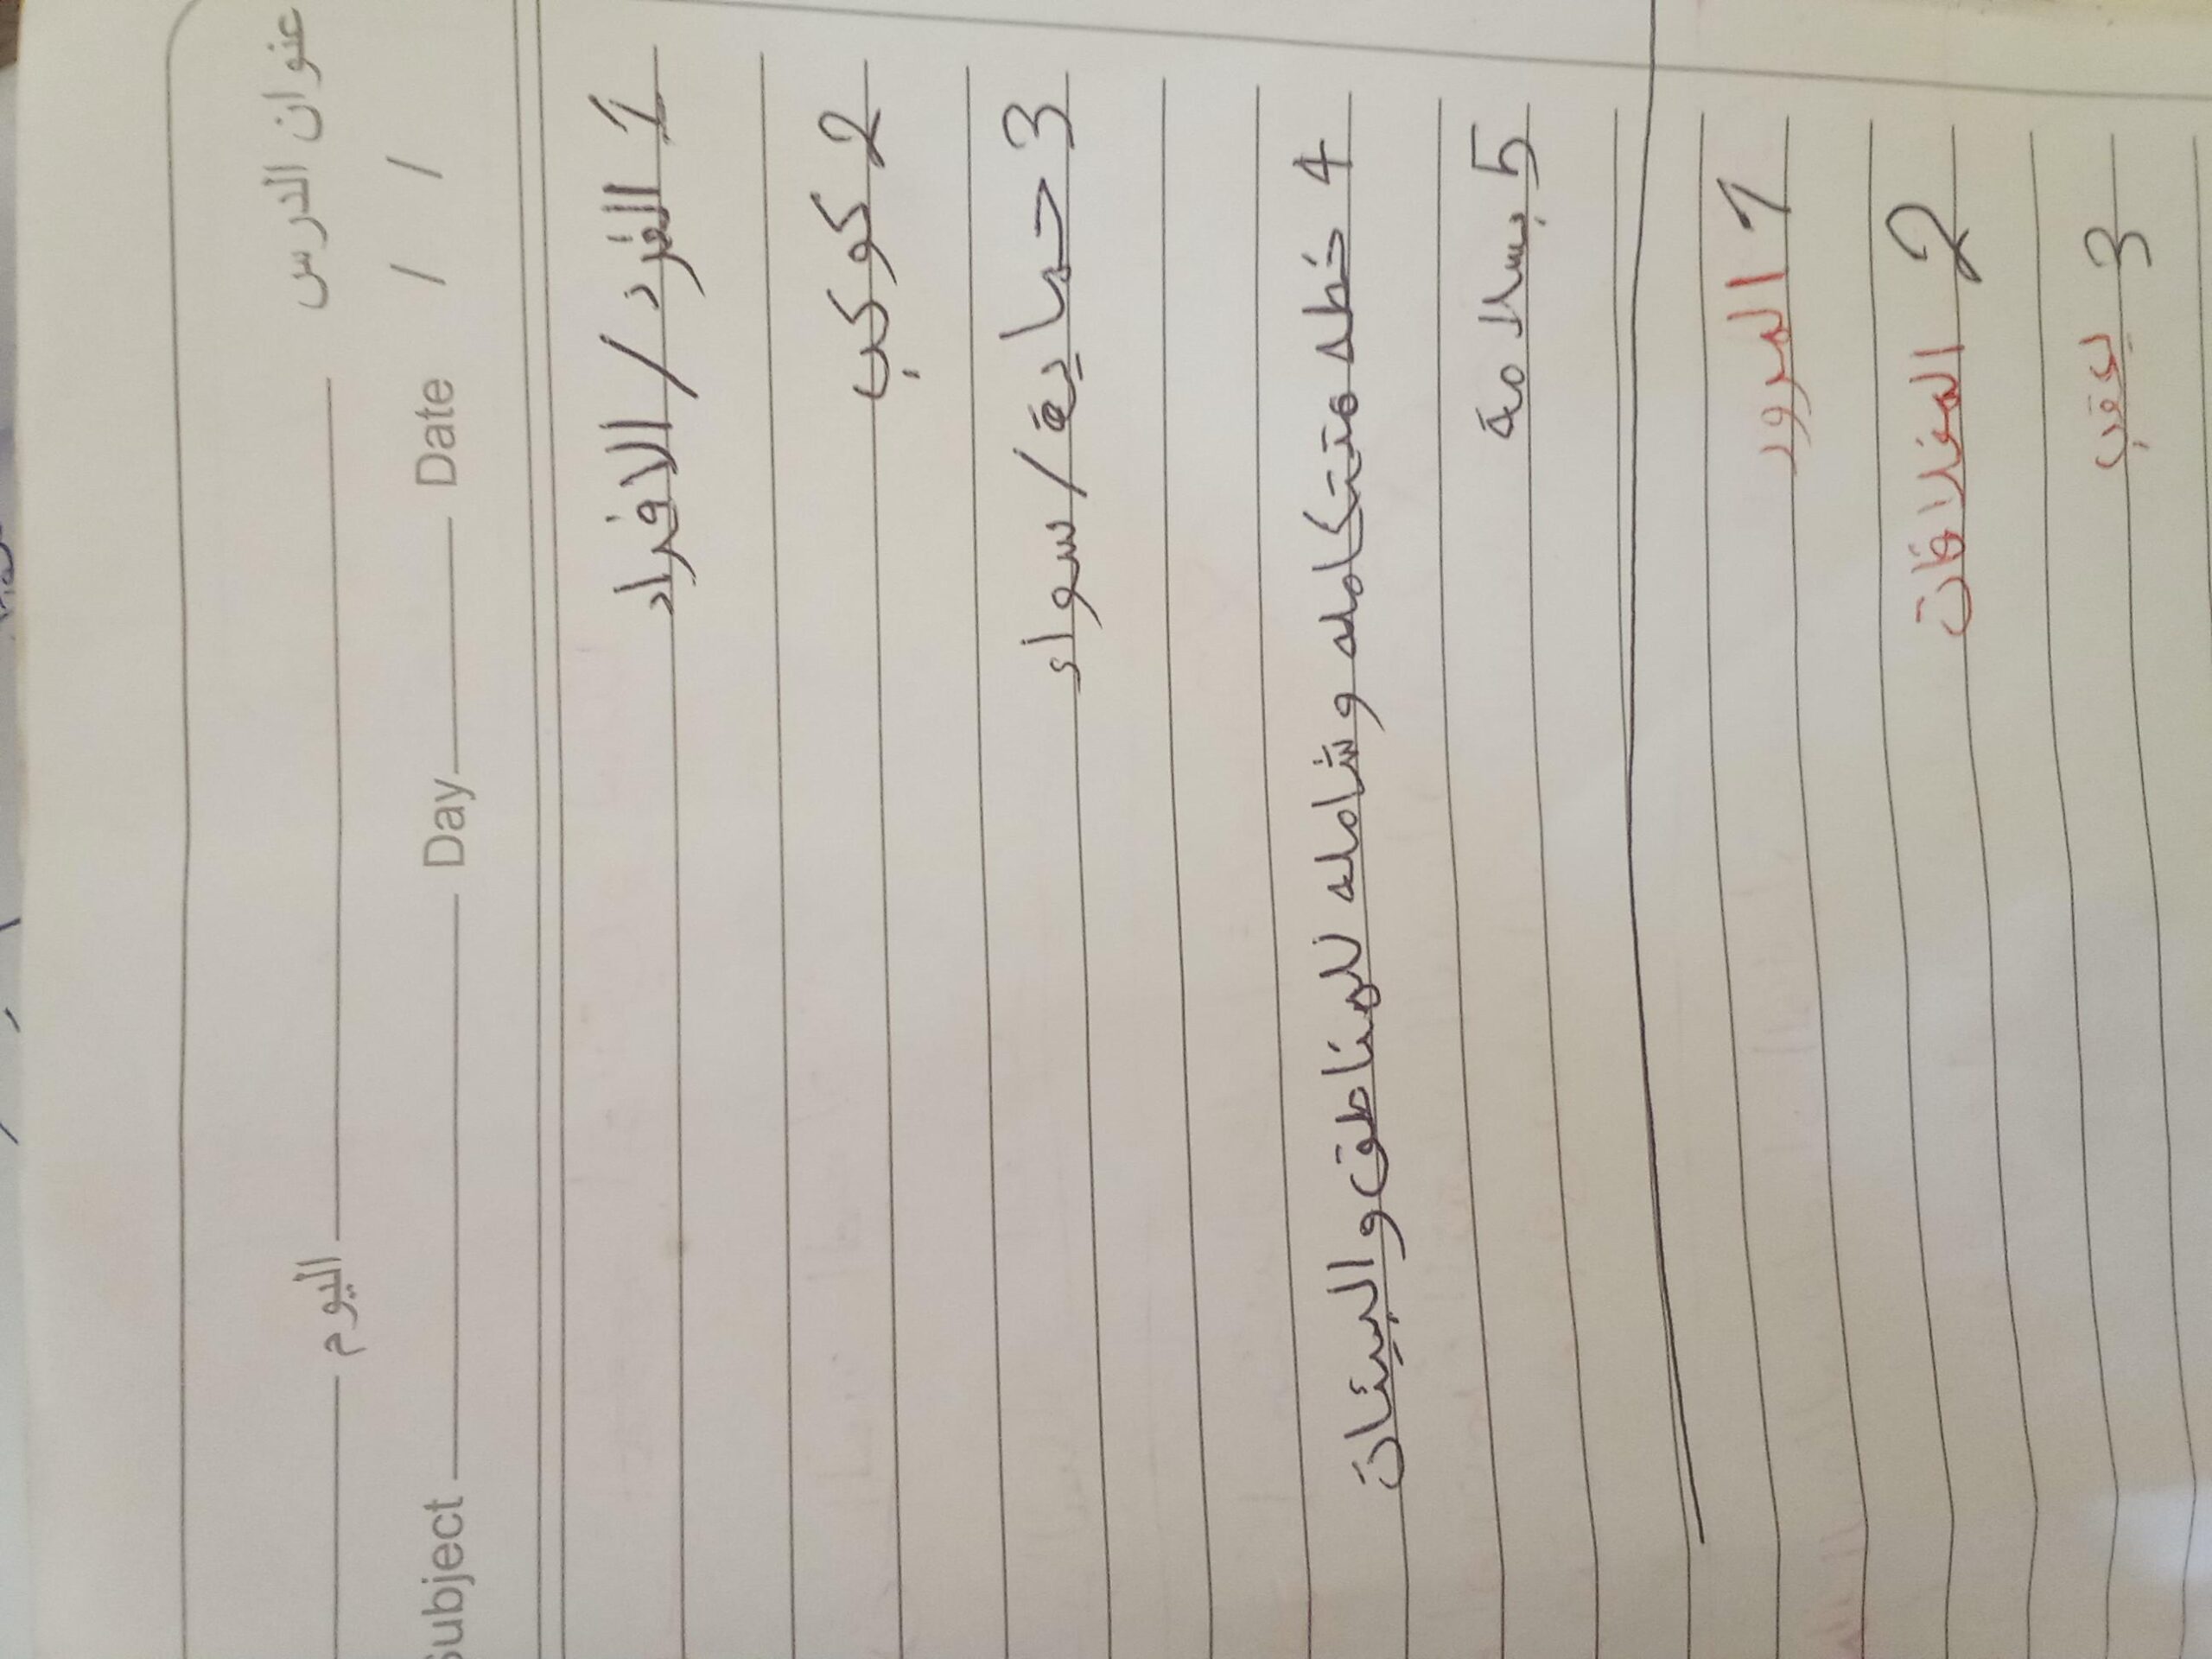 عنوان الدرس
اليوم
Subject Day Date / /
1 الفرد / الافراد
2 كوكب
3 حماية / سواء
4 خطه متكامله وشامله للمناطق والبيئات
5 بسلامة
1 المرور
2 المخلافات
3 يعقب